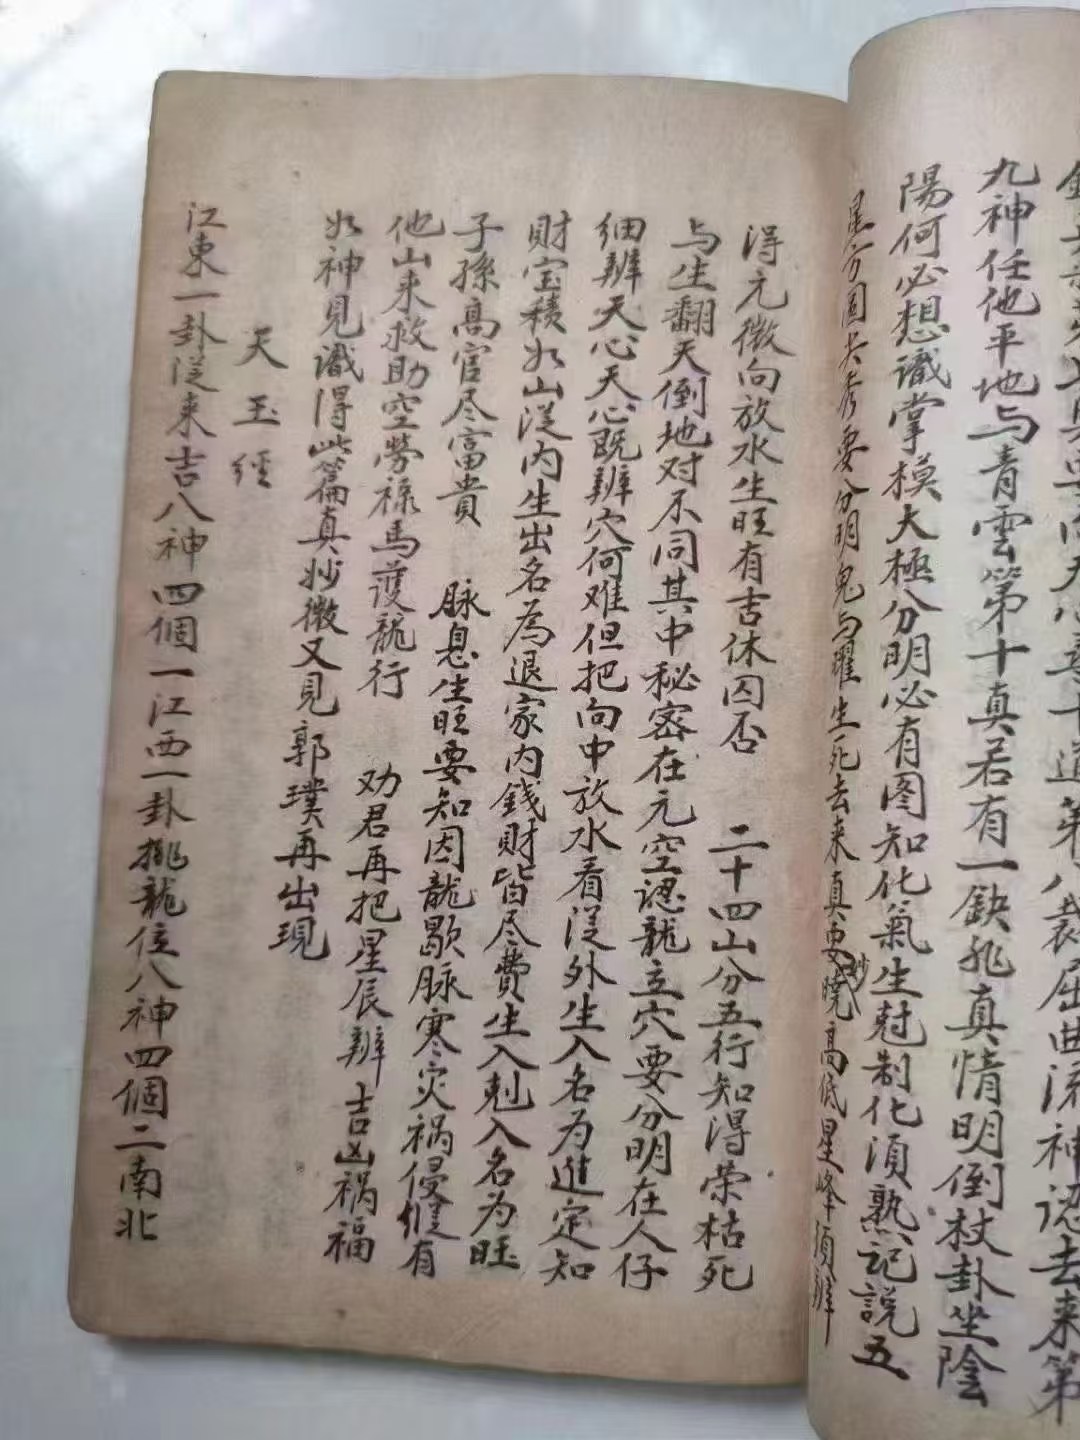 九神任他平地与青雲第十真若有一缺非真情明倒杖卦坐陰
陽何必想識掌模大極分明必有图知化氣生尅制化須熟記説五
星方圓尖秀要分明鬼与曜生死去来真要曉高低星峰須辨
妙
得元微向放水生旺有吉休囚否 二十四山分五行知得荣枯死
与生翻天倒地对不同其中秘密在元空認龍立穴要分明在人仔
细辨天心天心既辨穴何难但把向中放水看從外生入名为進定知
財宝積如山從内生出名為退家内錢財皆尽費生入剋入名为旺
子孫高官尽富貴 脉息生旺要知因龍歇脉寒灾祸侵縱有
他山来救助空劳禄馬護龍行 劝君再把星辰辨吉凶祸福
如神見識得此篇真妙微又見郭璞再出現
天玉經
江東一卦從来吉八神四個一江西一卦排龍位八神四個二南北